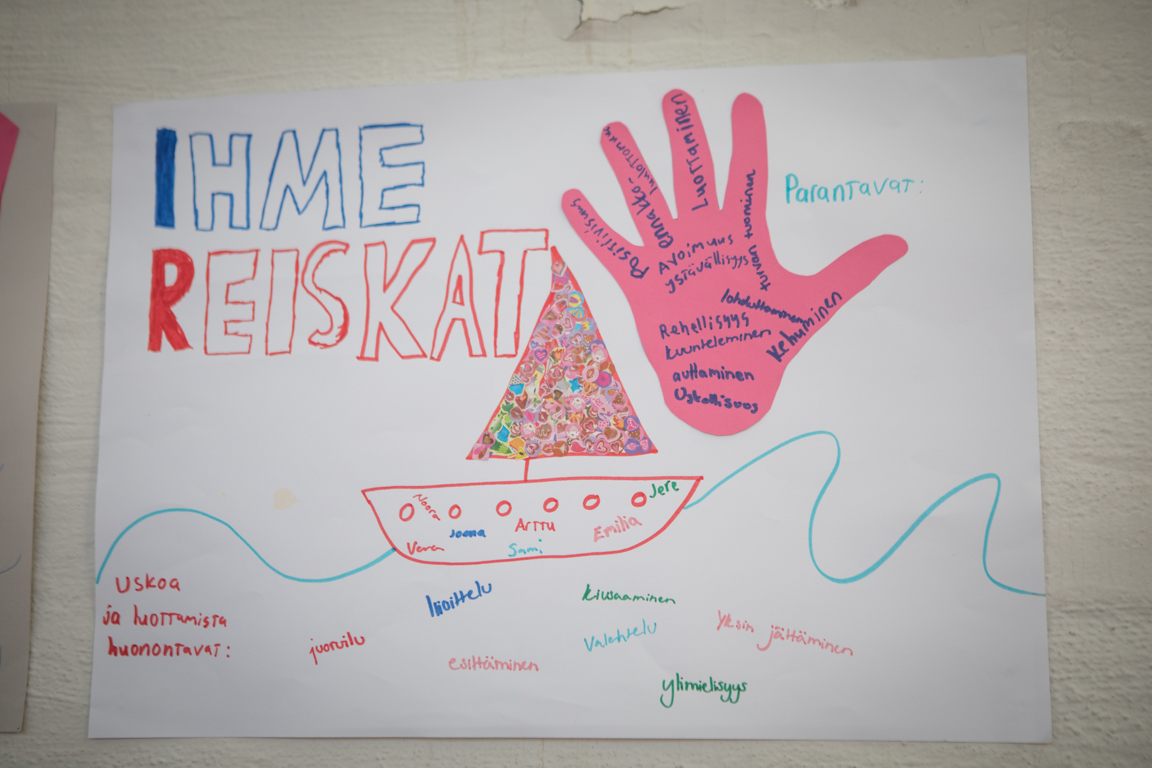 IHME
REISKAT
Parantavat:
Positiivisuus
ennakko-
luulottomuus
Luottaminen
turvan tuominen
Avoimuus
ystävällisyys
lohduttaminen
Kehuminen
Rehellisyys
kuunteleminen
auttaminen
Uskollisuus
Noora
Jere
Joona
Arttu
Emilia
Veera
Sami
uskoa
ja luottamista
huonontavat:
juoruilu
liioittelu
esittäminen
kiusaaminen
Valehtelu
Yksin jättäminen
ylimielisyys